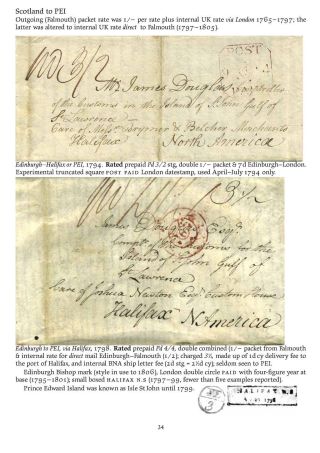 Scotland to PEI
Outgoing (Falmouth) packet rate was 1/– per rate plus internal UK rate via London 1765–1797; the
latter was altered to internal UK rate direct to Falmouth (1797–1805).
Pd 3/2
POST
Mr. James Douglas Comptroller
of the Customs in the Island of St. John Gulf of
St. Lawrence
Care of Messrs Brymer & Belcher Merchants
Halifax North America
Edinburgh–Halifax or PEI, 1794. Rated prepaid Pd 3/2 stg, double 1/– packet & 7d Edinburgh–London.
Experimental truncated square POST PAID London datestamp, used April–July 1794 only.
3½
James Douglas Esqr.
Comptr. of His Customs in the
Island of St. John Gulf of
St. Lawrence
Care of Joshua Newton Esqr. Custom House
Halifax N America
Edinburgh to PEI, via Halifax, 1798. Rated prepaid Pd 4/4, double combined (1/– packet from Falmouth
& internal rate for direct mail Edinburgh–Falmouth (1/2); charged 3½, made up of 1d cy delivery fee to
the port of Halifax, and internal BNA ship letter fee (2d stg = 2½d cy), seldom seen to PEI.
Edinburgh Bishop mark (style in use to 1806), London double circle PAID with four-figure year at
base (1795–1801); small boxed HALIFAX N.S (1797–99, fewer than five examples reported).
Prince Edward Island was known as Isle St John until 1799.
HALIFAX N S
34